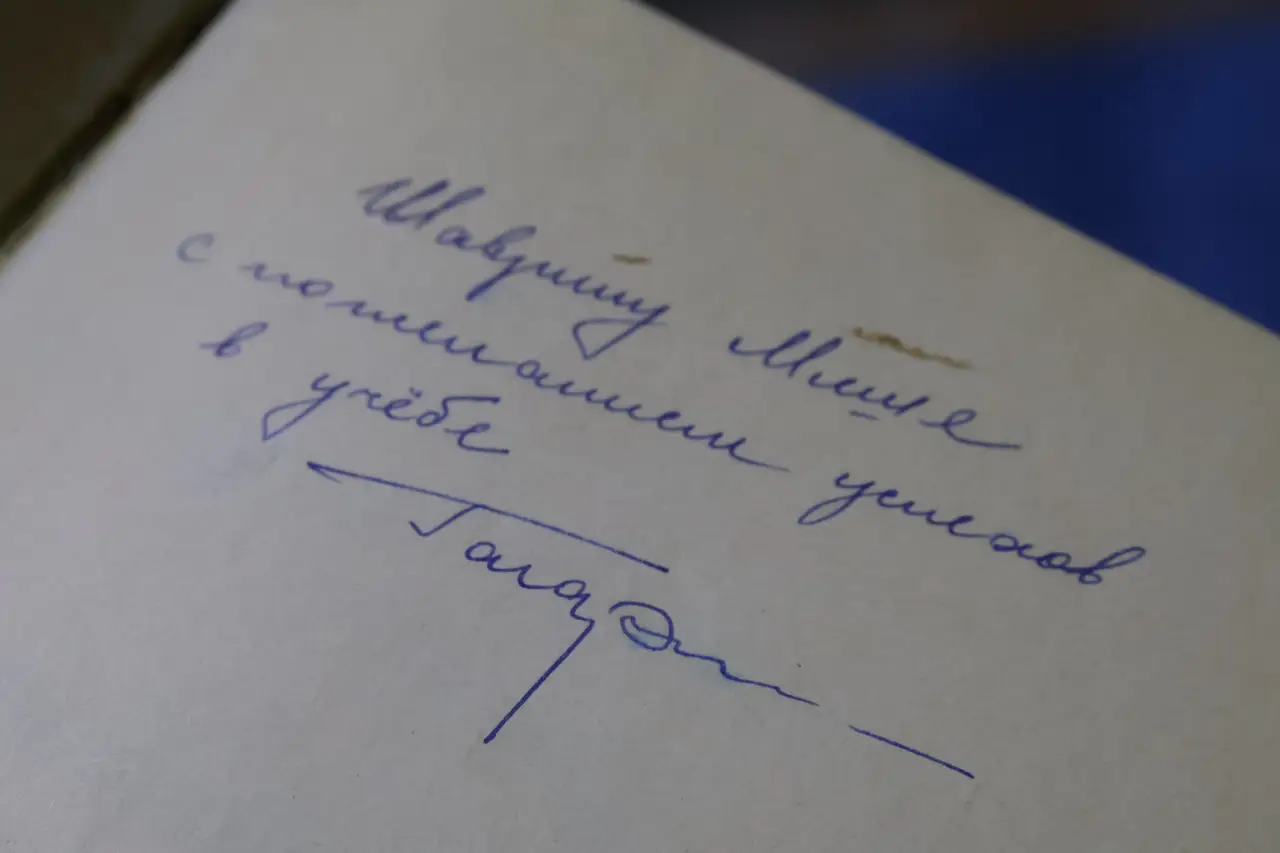 Шаврину Мише
с пожеланием успехов
в учёбе